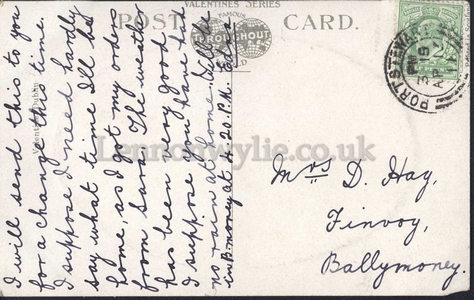 VALENTINES SERIES
POST CARD.
FAMOUS
THROUGHOUT
WORLD
PORTSTEWART
AP 19
I will send this to you
for a change this time.
I suppose I need hardly
say what time I'll be
home, as I got my orders
from Sarah. The weather
has been very good
I suppose you have had
no rain at home. Will be
in B-money at 4.20 P.M.
Mrs D. Hay,
Finvoy,
Ballymoney.
Lennonwylie.co.uk